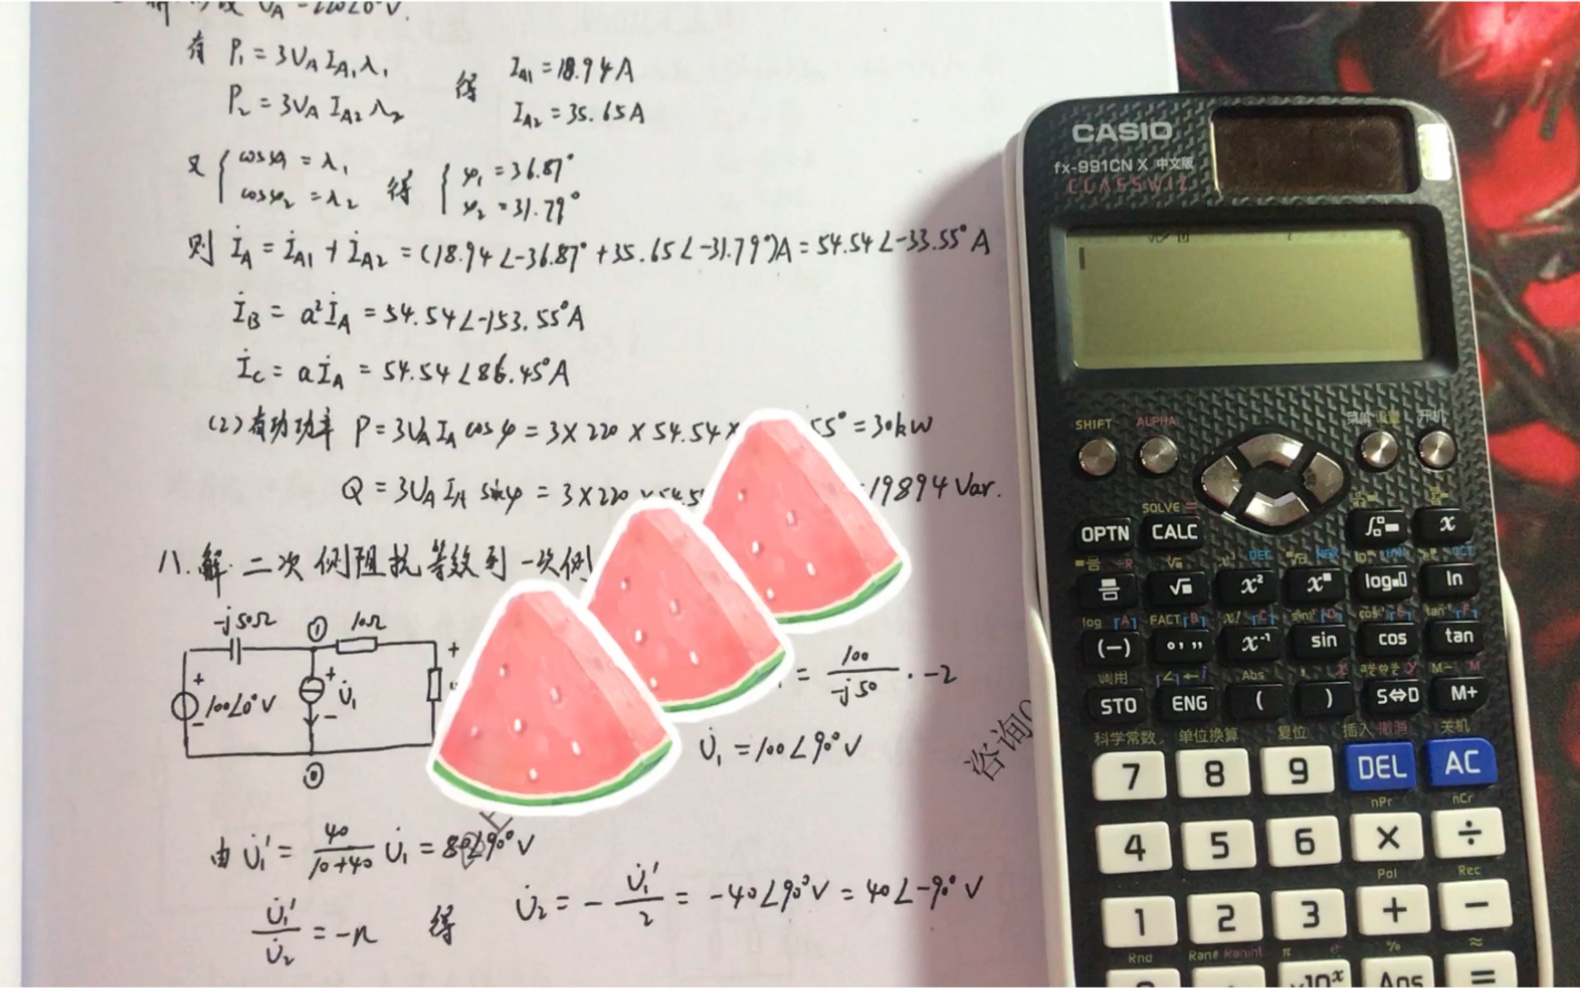 有 P₁ = 3U_A I_A₁ λ₁
P₂ = 3U_A I_A₂ λ₂
得 I_A1 = 18.94 A
I_A2 = 35.65 A
又 { cosφ₁ = λ₁
cosφ₂ = λ₂
得 { φ₁ = 36.87°
φ₂ = 31.79°
则 İ_A = İ_A1 + İ_A2 = (18.94∠-36.87° + 35.65∠-31.79°)A = 54.54∠-33.55° A
İ_B = a²İ_A = 54.54∠-153.55° A
İ_C = aİ_A = 54.54∠86.45° A
(2) 有功功率 P = 3U_A I_A cosφ = 3×220×54.54× 55° = 30kW
Q = 3U_A I_A sinφ = 3×220×54.5 19894 Var.
八. 解: 二次侧阻抗等效到一次侧
-j50Ω ① 10Ω
+ 100∠0°V - + U̇₁ - +
⓪
= 100/-j50 · -2
U̇₁ = 100∠90° V
由 U̇₁' = 40/10+40 U̇₁ = 80∠90° V
U̇₁'/U̇₂ = -n 得 U̇₂ = - U̇₁'/2 = -40∠90° V = 40∠-90° V
咨询
CASIO
fx-991CN X 中文版
CLASSWIZ
SHIFT ALPHA 菜单 设置 开机
SOLVE =
OPTN CALC x
√ x² DEC HEX BIN OCT
√ x² log ln
log A FACT B x! C sin⁻¹ D cos⁻¹ E tan⁻¹ F
(-) °,,, x⁻¹ sin cos tan
调用 ∠ ← i Abs x y M- M
STO ENG ( ) S⇔D M+
科学常数 单位换算 复位 插入 撤消 关机
7 8 9 DEL AC
nPr nCr
4 5 6 × ÷
Pol Rec
1 2 3 + −
Rnd Ran# RanInt π e % ≈
×10ˣ Ans =